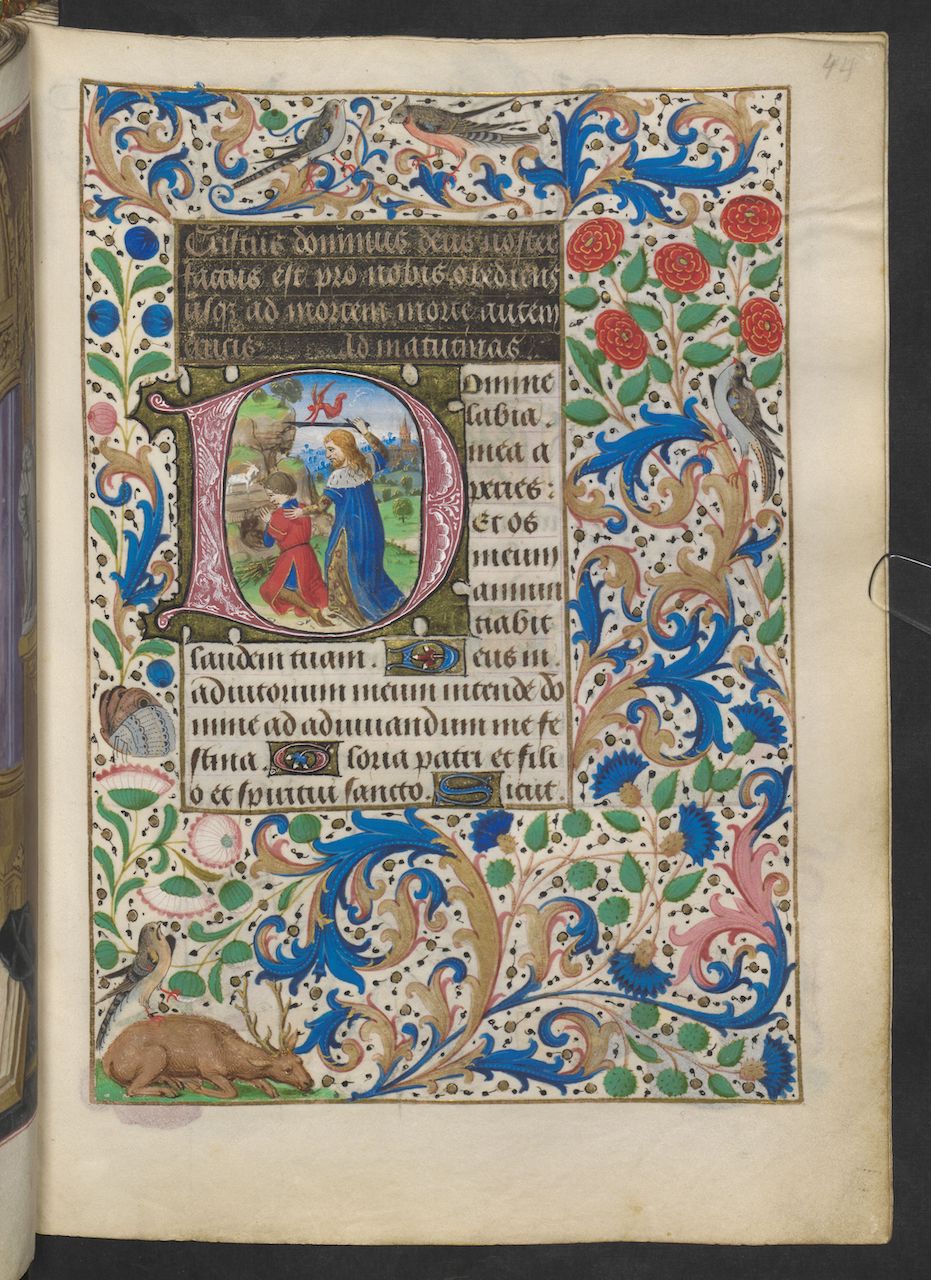 44
Cristus dominus deus noster
factus est pro nobis obediens
usq; ad mortem morte autem
crucis Ad matutinas.
Domine
labia.
mea a
peries:
Et os
meum
annun
tiabit
laudem tuam. Deus in.
adiutorium meum intende do
mine ad adiuuandum me fe
stina. Gloria patri et fili
o et spiritui sancto. Sicut.